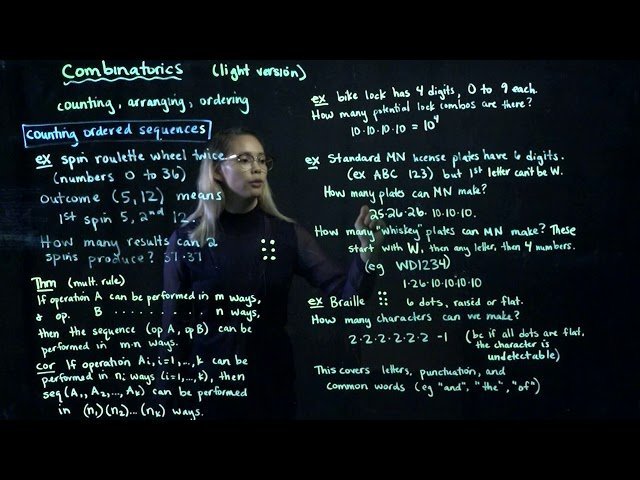 Combinatorics (light version)
counting, arranging, ordering
counting ordered sequences
ex spin roulette wheel twice
(numbers 0 to 36)
Outcome (5,12) means
1st spin 5, 2nd 12.
How many results can 2
spins produce? 37·37
Thm (mult. rule)
If operation A can be performed in m ways,
& op. B ........... n ways,
then the sequence (op A, op B) can be
performed in m·n ways.
cor If operation Ai, i=1,...,k can be
performed in ni ways (i=1,...,k), then
seq (A1, A2,..., Ak) can be performed
in (n1)(n2)...(nk) ways.
ex bike lock has 4 digits, 0 to 9 each.
How many potential lock combos are there?
10·10·10·10 = 10^4
ex Standard MN license plates have 6 digits.
(ex ABC 123) but 1st letter can't be W.
How many plates can MN make?
25·26·26·10·10·10.
How many "whiskey" plates can MN make? These
start with W, then any letter, then 4 numbers.
(eg WD1234)
1·26·10·10·10·10
ex Braille ⠿ 6 dots, raised or flat.
How many characters can we make?
2·2·2·2·2·2 -1 (bc if all dots are flat,
the character is
undetectable)
This covers letters, punctuation, and
common words (eg "and", "the", "of")